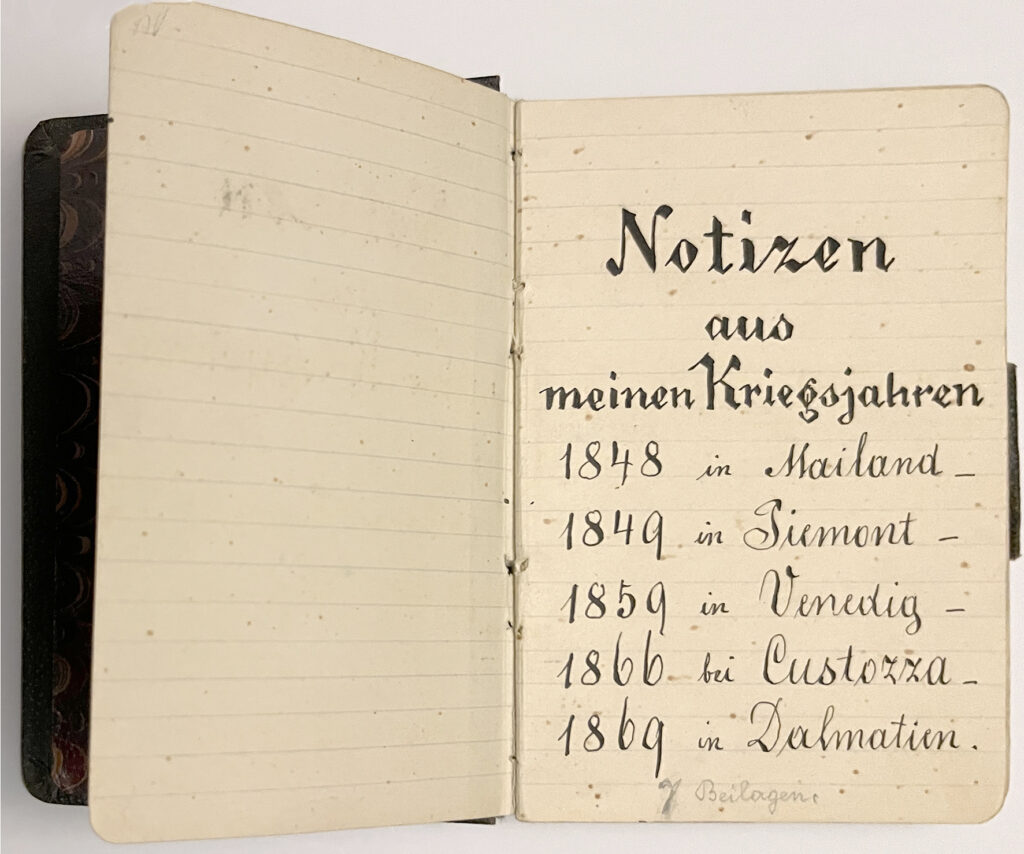 Notizen
aus
meinen Kriegsjahren
1848 in Mailand –
1849 in Piemont –
1859 in Venedig –
1866 bei Custozza –
1869 in Dalmatien.
7 Beilagen.